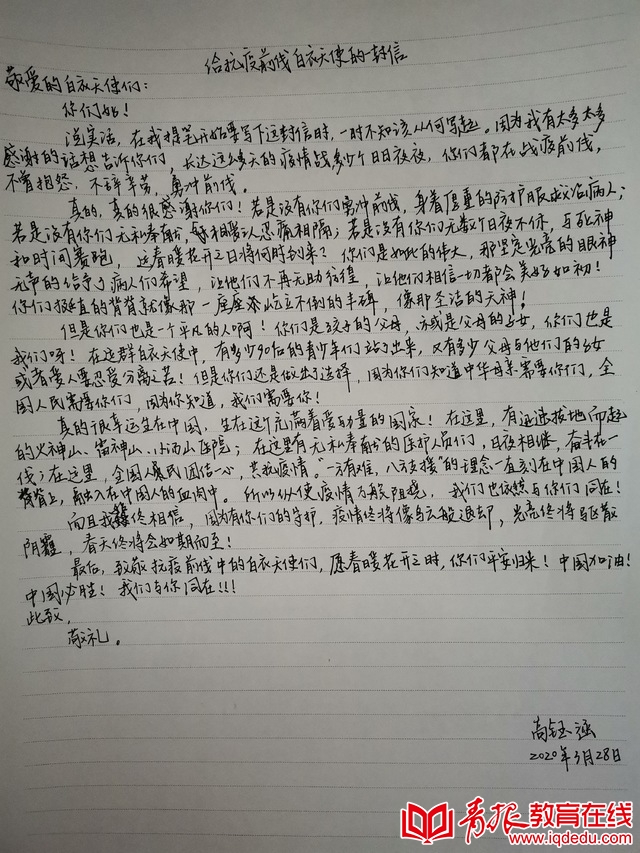 给抗疫前线白衣天使的一封信
敬爱的白衣天使们：
你们好！
说实话，在我提笔开始要写下这封信时，一时不知该从何写起。因为我有太多太多
感谢的话想告诉你们，长达这么多天的疫情战，多少个日日夜夜，你们都在战疫前线，
不曾抱怨，不辞辛苦，勇冲前线。
真的，真的很感谢你们！若是没有你们勇冲前线，身着厚重的防护服救治病人；
若是没有你们无私奉献，与相爱之人忍痛相隔；若是没有你们无数个日夜不休，与死神
和时间赛跑，这春暖花开之日将何时到来？你们是如此的伟大，那坚定光亮的眼神
无声的给予了病人们希望，让他们不再无助彷徨，让他们相信一切都会美好如初！
你们挺直的脊背就像那一座座屹立不倒的丰碑，像那圣洁的天神！
但是你们也是一个平凡的人啊！你们是孩子的父母，亦或是父母的子女，你们也是
我们呀！在这群白衣天使中，有多少90后的青少年们站了出来，又有多少父母与他们的子女
或者爱人要忍受分离之苦！但是你们还是做出了选择，因为你们知道中华母亲需要你们，全
国人民需要你们，因为你知道，我们需要你！
真的很幸运生在中国，生在这个充满着爱与力量的国家！在这里，有迅速拔地而起
的火神山、雷神山、小汤山医院；在这里有无私奉献的医护人员们，日夜相继，奋斗在一
线；在这里，全国人民团结一心，共抗疫情。“一方有难，八方支援”的理念一直刻在中国人的
脊背上，融入在中国人的血肉中。所以纵使疫情万般阻挠，我们也依然与你们同在！
而且我终相信，因为有你们的守护，疫情终将像乌云般退却，光亮终将驱散
阴霾，春天终将会如期而至！
最后，致敬抗疫前线中的白衣天使们，愿春暖花开之时，你们平安归来！中国加油！
中国必胜！我们与你同在！！！
此致，
敬礼。
高钰涵
2020年3月28日
青报教育在线
www.iqdedu.com